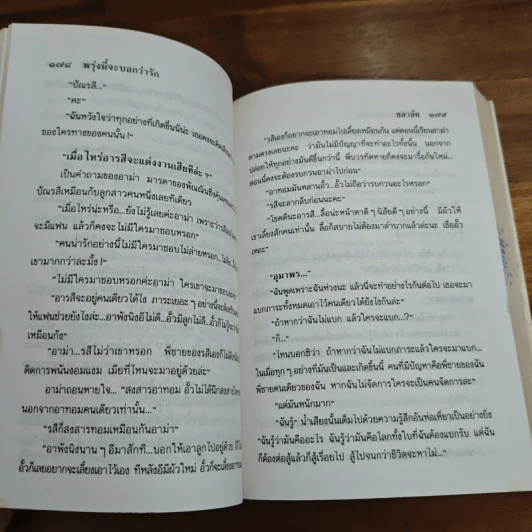 ๑๗๘ พรุ่งนี้จะบอกว่ารัก
"ปัณรสี..."
"คะ"
"ฉันหวังใจว่าทุกอย่างที่เกิดขึ้นนี่น่ะ เธอคงจะตัดสิน
ของใครทางของคนนั้น !"
"เมื่อไหร่อารสีจะแต่งงานเสียทีล่ะ ?"
เป็นคำถามของอาม่า มารดาของพัณณินซึ่งคุ้นเคย
ปัณรสีเหมือนกับลูกสาวคนหนึ่งเลยทีเดียว
"เมื่อไหร่น่ะหรือ...ยังไม่รู้เลยค่ะอาม่า เพราะว่า
จะมีแฟน แล้วก็คงจะไม่มีใครมาชอบหรอก"
"คนน่ารักอย่างนี้ไม่มีใครมาชอบไม่ล่ายหรอก...
เขามากกว่าละมั้ง !"
"ไม่มีใครมาชอบหรอกค่ะอาม่า ใครเขาจะมาชอบ
"อารสีจะอยู่คนเดียวได้ไง ภาระเยอะ ๆ อย่างนี้จะต้อง
ให้แฟนช่วยยังไงล่ะ...อาพังนิงอีไม่ดี...อั๊วมีลูกไม่ลี...อั๊วก็ไม่รู้จะว่า
เหมือนกัง"
"อาม่า...รสีไม่ว่าเขาหรอก พี่ชายของรสีเองก็ไม่ดีเหมือน
ติดการพนันงอมแงม เมียที่ไหนจะมาอยู่ด้วยล่ะ"
อาม่าถอนหายใจ... "สงสารอาทอม อั๊วไม่ได้นึกสงสาร
นอกจากอาทอมคนเดียวเท่านั้น..."
"รสีก็สงสารทอมเหมือนกันจะอาม่า"
"อาพังนิงนาน ๆ อีมาสักที...บอกให้เอาลูกไปอยู่ด้วย อีไม่
อั๊วก็เลยอยากจะเลี้ยงเอาไว้เอง ทีหลังอีมีผัวใหม่ อั๊วก็จะเลี้ยง
ชลาลัย ๑๗๙
"รสีเองก็อยากจะเอาทอมไปเลี้ยงเหมือนกัน แต่ตอนนี้เรียนอาม่า
ตามตรงเลยนะคะ ว่ามันไม่มีปัญญาที่จะทำอะไรทั้งนั้น นอกจาก
ปล่อยให้ทุกอย่างมันดีขึ้นกว่านี้ พี่บวรทัตหายก็คงจะมารือกันใหม่...
ตอนนี้คงจะต้องรบกวนอาม่าไปก่อน"
"อาทอมมันหลานอั๊ว...อั๊วไม่ถือว่ารบกวนอะไรหรอก"
"รสีจะลากลับก่อนนะคะ"
"โชคดีนะอารสี...ลื้อน่ะหน้าตาดี ๆ นิสัยดี ๆ อย่างนี้ มีผัวให้
เขาเลี้ยงสักคนเท่านั้น ลื้อก็สบายไม่ต้องมาลำบากแล้วล่ะ เชื่ออั๊ว
เหอะ"
"อุมาพร..."
"ฉันพูดเพราะฉันห่วงนะ แล้วนี่จะทำอย่างไรกันต่อไป เธอจะมา
แบกภาระทั้งหมดเอาไว้คนเดียวได้ยังไงกันล่ะ"
"ถ้าหากว่าฉันไม่แบก แล้วใครจะแบก...?"
"ก็..."
"ไหนบอกซิว่า ถ้าหากว่าฉันไม่แบกภาระแล้วใครจะมาแบก...
ในเมื่อทุก ๆ อย่างที่มันเป็นและเกิดขึ้นนี้ คนที่มีปัญหาคือพี่ชายของฉัน
พี่ชายคนเดียวของฉัน หากฉันไม่จัดการใครจะเป็นคนจัดการล่ะ"
"แต่มันหนักมาก"
"ฉันรู้" น้ำเสียงนั้นเต็มไปด้วยความรู้สึกอันห่อเหี่ยวเป็นอย่างยิ่ง
"ฉันรู้ว่ามันคืออะไร ฉันรู้ว่ามันคือโลกทั้งใบที่ฉันต้องแบกรับ แต่ฉัน
ก็ต้องต่อสู้แล้วก็สู้เรื่อยไป สู้ไปจนกว่าชีวิตจะหาไม่..."